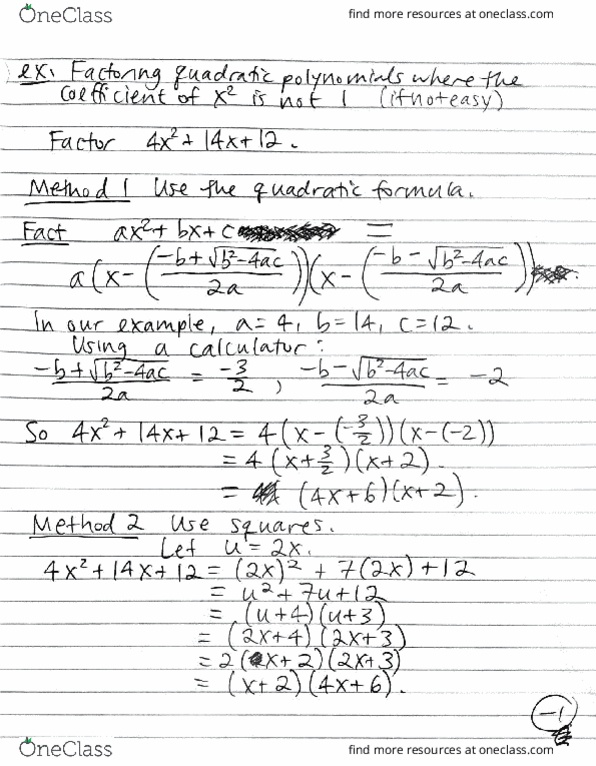 OneClass find more resources at oneclass.com
ex. Factoring quadratic polynomials where the
coefficient of x² is not 1 (if not easy)
Factor 4x² + 14x + 12.
Method 1 Use the quadratic formula.
Fact ax² + bx + c =
a(x - (-b + √(b² - 4ac) / 2a))(x - (-b - √(b² - 4ac) / 2a))
In our example, a = 4, b = 14, c = 12.
Using a calculator:
-b + √(b² - 4ac) / 2a = -3/2, -b - √(b² - 4ac) / 2a = -2
So 4x² + 14x + 12 = 4(x - (-3/2))(x - (-2))
= 4(x + 3/2)(x + 2).
= (4x + 6)(x + 2).
Method 2 Use squares.
Let u = 2x.
4x² + 14x + 12 = (2x)² + 7(2x) + 12
= u² + 7u + 12
= (u + 4)(u + 3)
= (2x + 4)(2x + 3)
= 2(x + 2)(2x + 3)
= (x + 2)(4x + 6).
-1
OneClass find more resources at oneclass.com